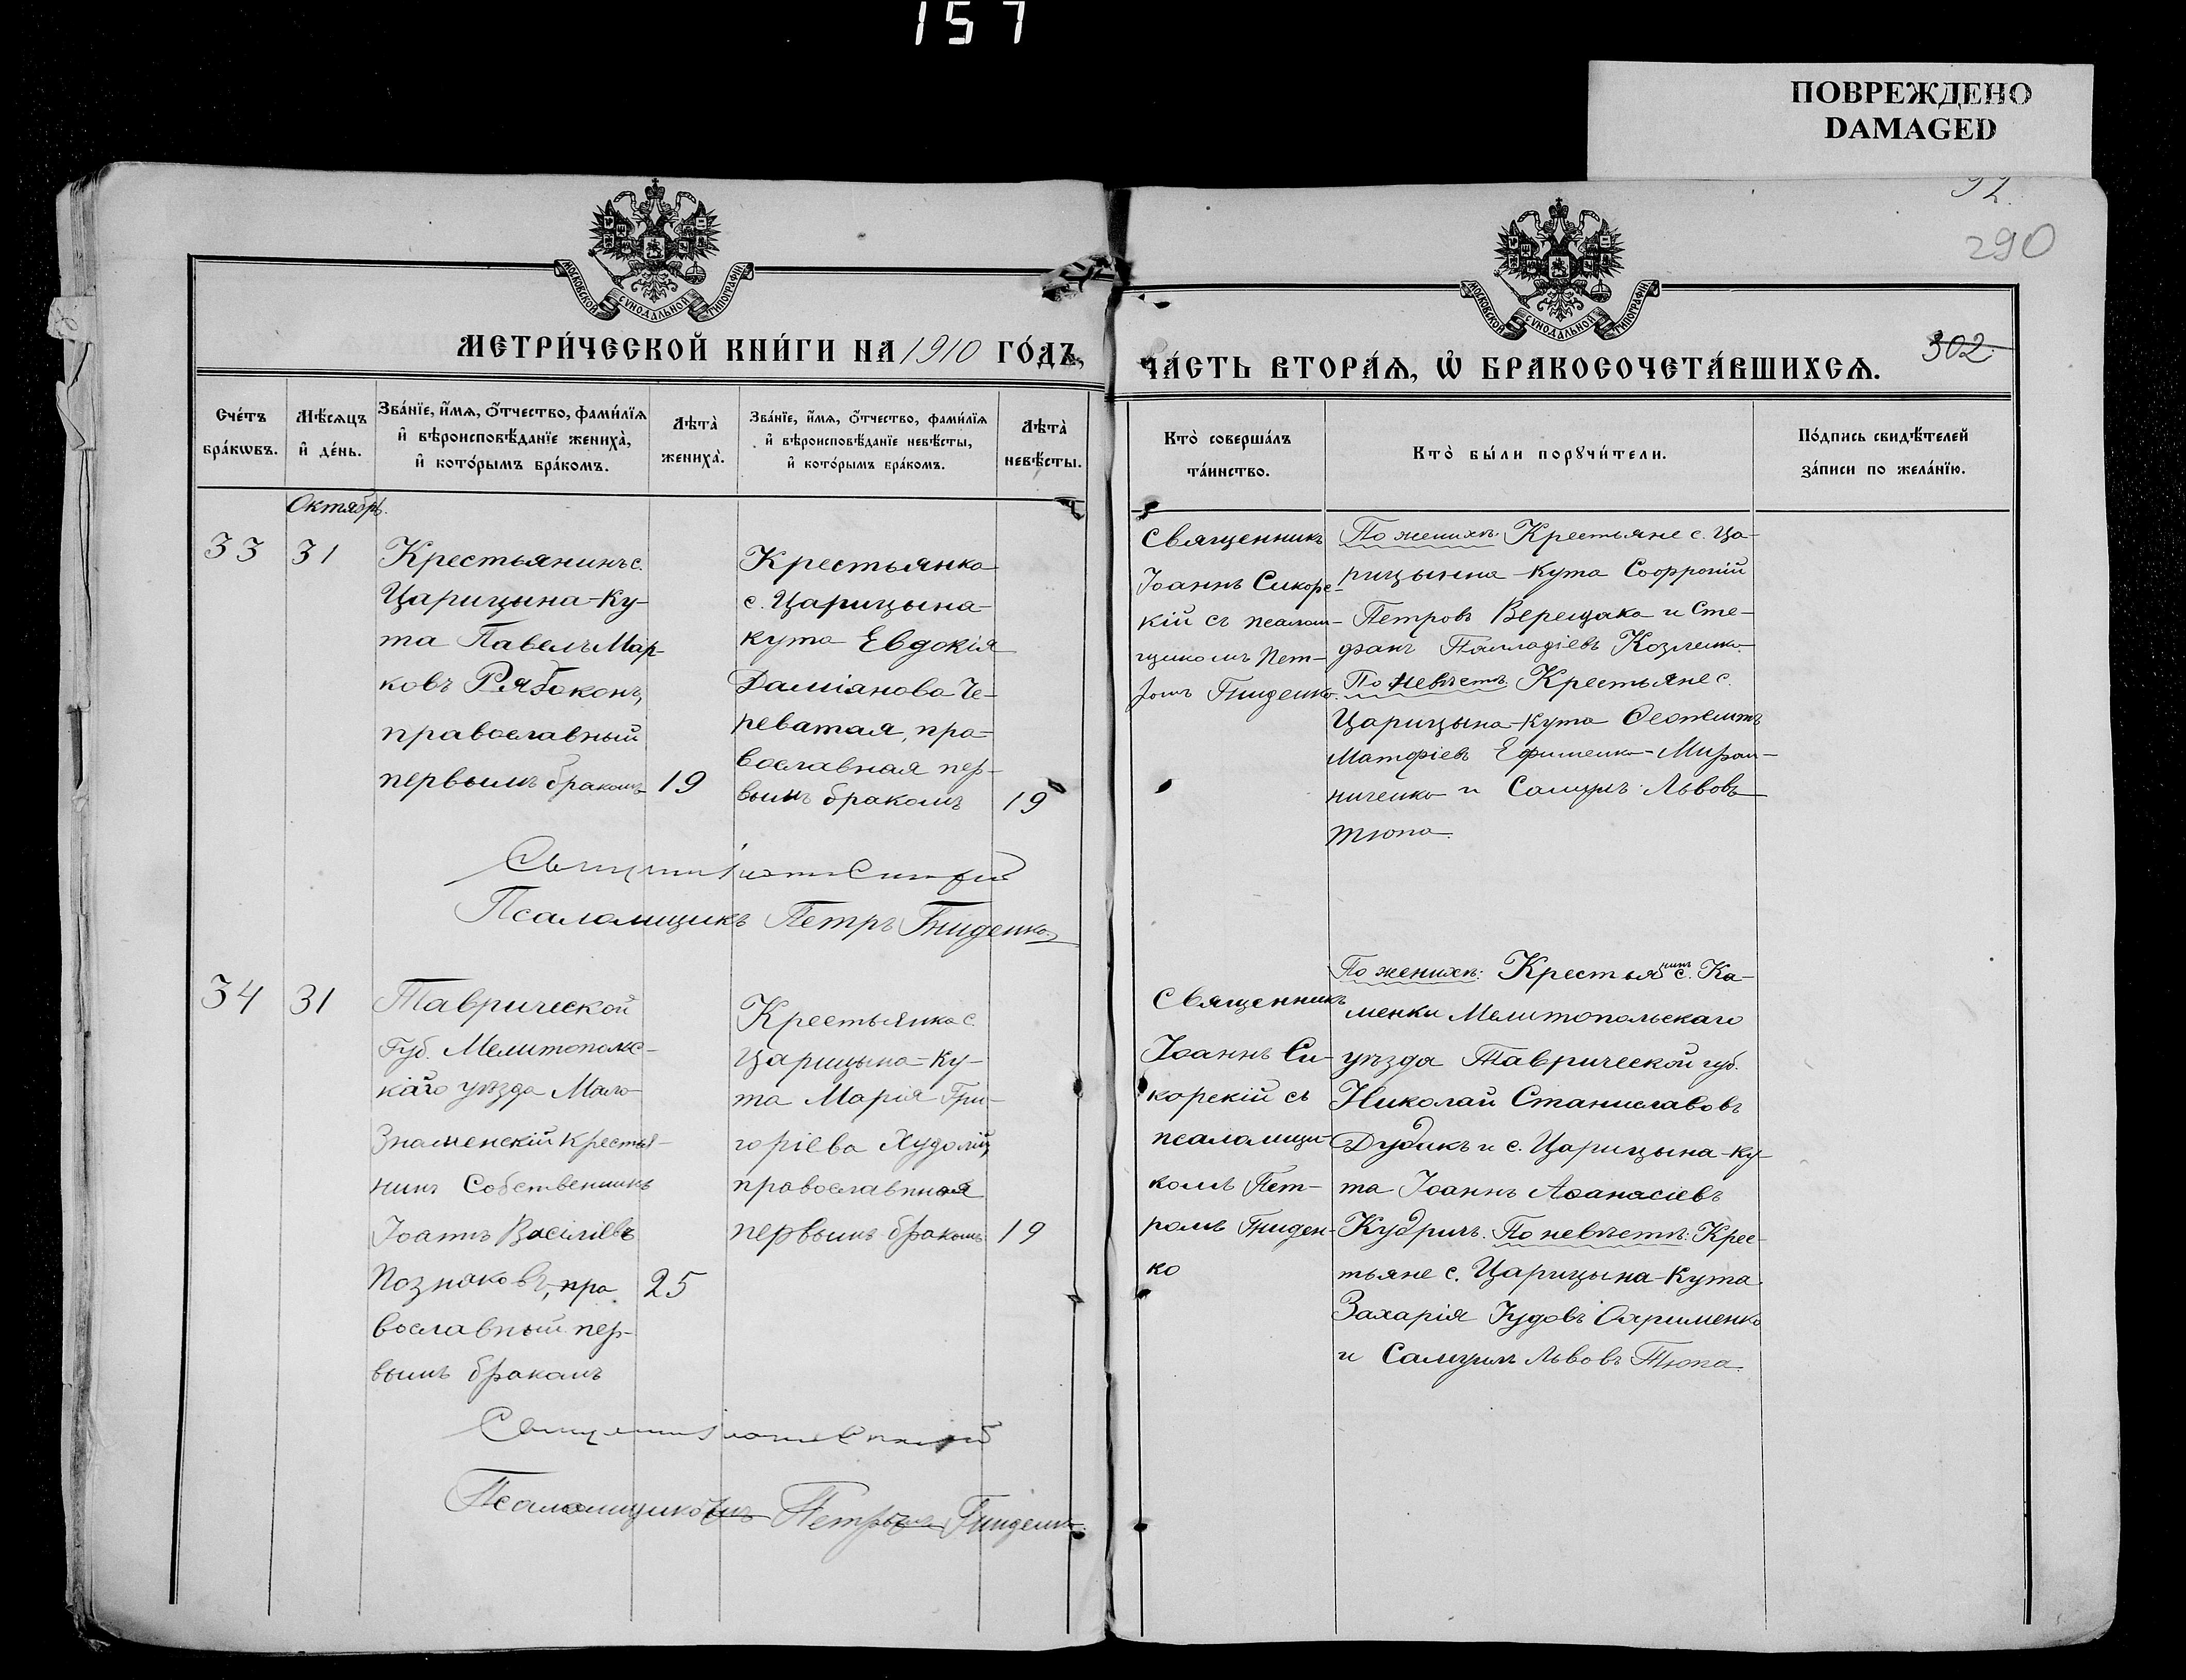 157
ПОВРЕЖДЕНО
DAMAGED
92.
290
302.
МОСКОВСКОЙ СУНОДАЛЬНОЙ ТИПОГРАФІИ
МОСКОВСКОЙ СУНОДАЛЬНОЙ ТИПОГРАФІИ
МЕТРИ́ЧЕСКОЙ КНИ́ГИ НА 1910 ГО́ДЪ,
ЧА́СТЬ ВТОРА́Ѧ, Ѡ҆ БРАКОСОЧЕТА́ВШИХСѦ.
Сче́тъ
бра́кѡвъ.
Мѣ́сѧцъ
и҆ де́нь.
Зва́нїе, и҆́мѧ, ѻ҆́тчество, фами́лїѧ
и҆ вѣроисповѣ́данїе жениха̀,
и҆ кото́рымъ бра́комъ.
Лѣта̀
жениха̀.
Зва́нїе, и҆́мѧ, ѻ҆́тчество, фами́лїѧ
и҆ вѣроисповѣ́данїе невѣ́сты,
и҆ кото́рымъ бра́комъ.
Лѣта̀
невѣ́сты.
Кто̀ соверша́лъ
та́инство.
Кто̀ бы́ли порꙋчи́тели.
По́дпись свидѣ́телей
за́писи по жела́нїю.
Октябрь.
33
31
Крестьянинъ с.
Царицына-Ку-
та Павелъ Мар-
ковъ Рябоконь,
православный
первымъ бракомъ
19
Крестьянка
с. Царицына-
кута Евдокія
Даміанова Че-
реватая, пра-
вославная пер-
вымъ бракомъ
19
Священникъ
Іоаннъ Сикорс-
кій съ псалом-
щикомъ Пет-
ромъ Гниденко.
По женихѣ: Крестьяне с. Ца-
рицына-Кута Софроній
Петровъ Верещака и Сте-
фанъ Палладіевъ Козленко.
По невѣстѣ: Крестьяне с.
Царицына-Кута Ѳеопемптъ
Матфіевъ Ефименко-Мирош-
ниченко и Самуилъ Львовъ
Тюпа.
Псаломщикъ Петръ Гниденко
34
31
Таврической
Губ. Мелитопольс-
каго уѣзда Мало-
Знаменскій Крестья-
нинъ Собственникъ
Іоаннъ Василіевъ
Позняковъ, пра
вославный пер-
вымъ бракомъ
25
Крестьянка с.
Царицына-Ку-
та Марія Гри-
горіева Худолій,
православная
первымъ бракомъ
19
Священникъ
Іоаннъ Си-
корскій съ
псаломщи-
комъ Пет-
ромъ Гниден-
ко
По женихѣ: Крестьянинъ с. Ка-
менки Мелитопольскаго
уѣзда Таврической губ.
Николай Станиславовъ
Дудикъ и с. Царицына-Ку-
та Іоаннъ Аѳанасіевъ
Кудричъ. По невѣстѣ: Крес-
тьяне с. Царицына-Кута
Захарія Іудовъ Охрименко
и Самуилъ Львовъ Тюпа.
Псаломщикъ Петръ Гниденко